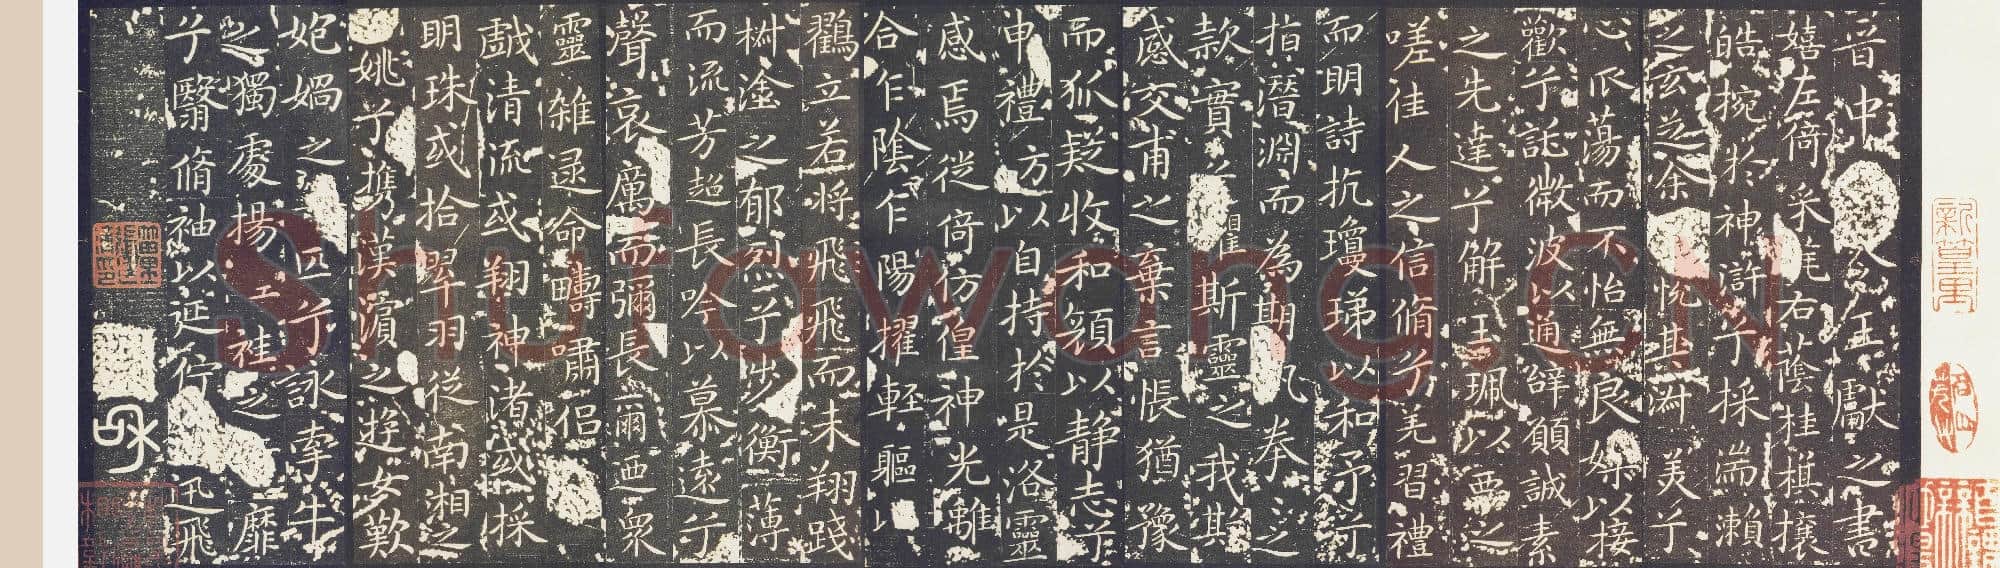 晋中令王獻之書
嬉左倚采旄右蔭桂棋攘
皓捥於神滸兮採湍瀨
之玄芝余悅其淑美兮
心爪蕩而不怡無良媒以接
歡兮託微波以通辝願誠素
之先達兮解玉珮以要之
嗟佳人之信脩兮羌習禮
而明詩抗瓊珶以和予兮
指潛淵而為期執拳之
款實兮懼斯靈之我欺
感交甫之棄言悵猶豫
而狐疑收和顔以静志兮
申禮防以自持於是洛靈
感焉徙倚仿偟神光離
合乍陰乍陽擢軽軀以
鸛立若将飛飛而未翔踐
椒塗之郁烈兮步衡薄
而流芳超長吟以慕遠兮
聲哀厲而彌長爾迺衆
靈雜遝命疇嘯侣
戲清流或翔神渚或採
明珠或拾翠羽従南湘之
姚兮攜漢濱之遊女歎
妑媧之匹兮詠牽牛
之獨處揚袿之靡
兮翳脩袖以延佇迅飛
Shufawang.CN